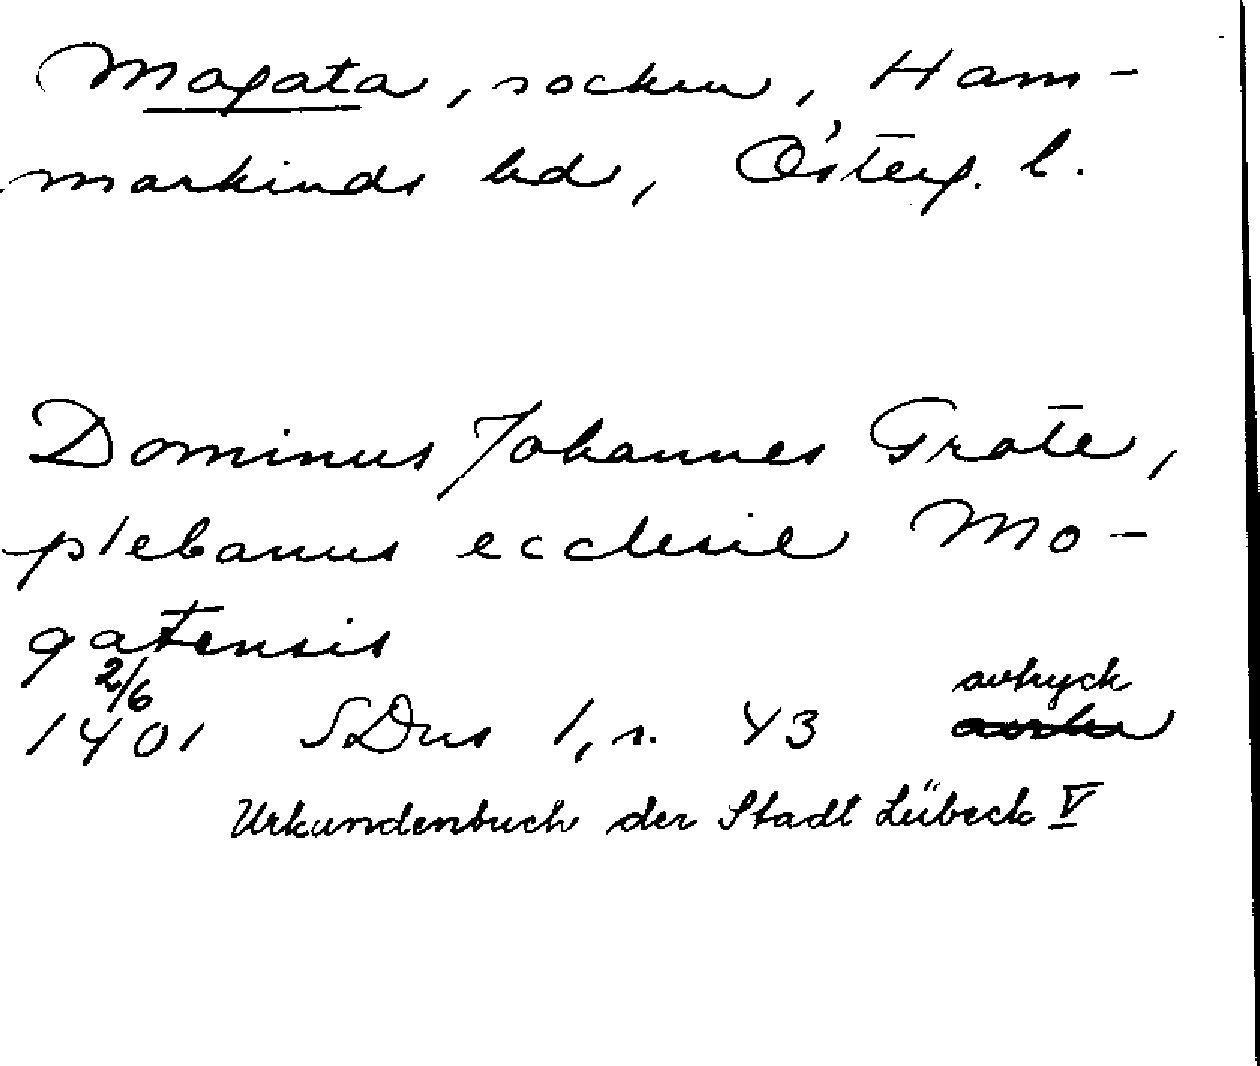 Mogata, socken, Ham-
markinds hd, Österg. l.
Dominus Johannes Grote,
plebanus ecclesie Mo-
gatensis
2/6
1401 SDns 1, s. 43 avtryck
Urkundenbuch der Stadt Lübeck V